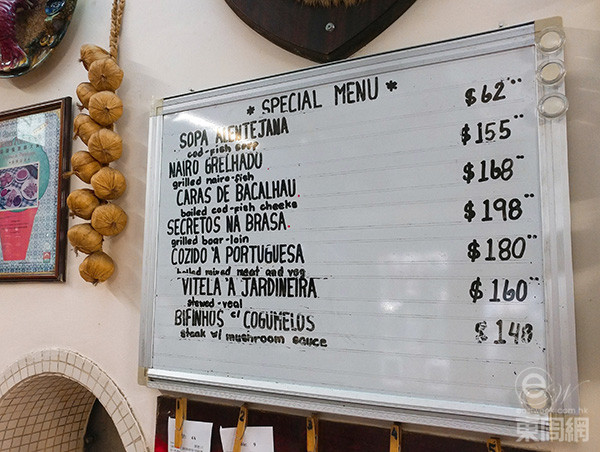 * SPECIAL MENU *
SOPA ALENTEJANA $62
cod-fish soup
NAIRO GRELHADU $155
grilled nairo-fish
CARAS DE BACALHAU $168
boiled cod-fish cheeks
SECRETOS NA BRASA $198
grilled boar-loin
COZIDO À PORTUGUESA $180
boiled mixed meat and veg
VITELA À JARDINEIRA $160
stewed-veal
BIFINHOS c/ COGUMELOS $148
steak w/ mushroom sauce
東周網